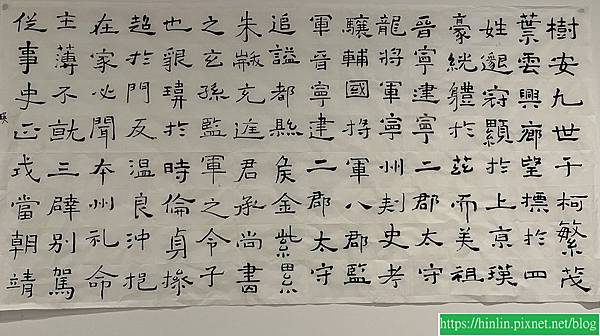 樹安九世于柯繁茂
葉雲興鄉望標於四
姓邈冠顯於上京瑛
豪繼體於茲而美祖
晉寧建寧二郡太守
龍將軍寧州刾史考
驤輔國將軍八郡監
軍晉寧建二郡太守
追謚都縣侯金紫累
朱黻充庭君承尚書
之玄孫監軍之令子
也貌瑋於時倫貞操
超於門友温良沖挹
在家必聞本州礼命
主薄不就三辟別駕
從事史正式當朝靖
https://hinlin.pixnet.net/blog